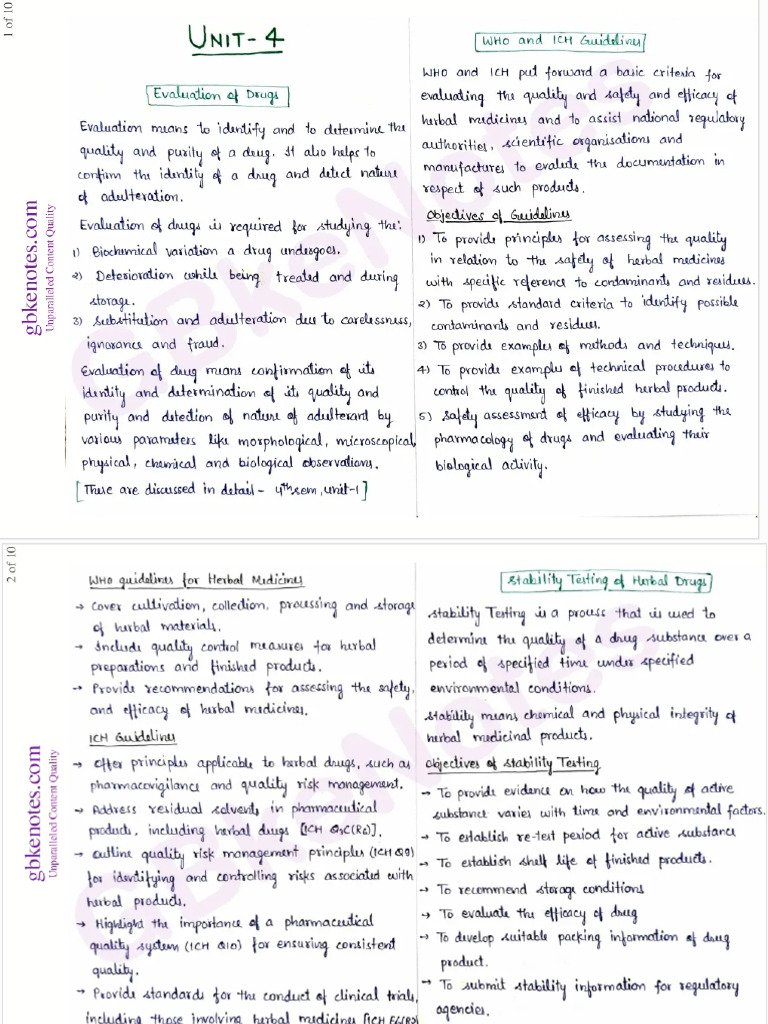 1 of 10
UNIT-4
Evaluation of Drugs
Evaluation means to identify and to determine the
quality and purity of a drug. It also helps to
confirm the identity of a drug and detect nature
of adulteration.
Evaluation of drugs is required for studying the:
1) Biochemical variation a drug undergoes.
2) Deterioration while being treated and during
storage.
3) Substitution and adulteration due to carelessness,
ignorance and fraud.
Evaluation of drug means confirmation of its
identity and determination of its quality and
purity and detection of nature of adulterant by
various parameters like morphological, microscopical,
physical, chemical and biological observations.
[These are discussed in detail - 4th sem, unit-1]
WHO and ICH Guidelines
WHO and ICH put forward a basic criteria for
evaluating the quality and safety and efficacy of
herbal medicines and to assist national regulatory
authorities, scientific organisations and
manufactures to evaluate the documentation in
respect of such products.
Objectives of Guidelines
1) To provide principles for assessing the quality
in relation to the safety of herbal medicines
with specific reference to contaminants and residues.
2) To provide standard criteria to identify possible
contaminants and residues.
3) To provide examples of methods and techniques.
4) To provide examples of technical procedures to
control the quality of finished herbal products.
5) Safety assessment of efficacy by studying the
pharmacology of drugs and evaluating their
biological activity.
gbkenotes.com
Unparalleled Content Quality
GBkeNotes
2 of 10
WHO guidelines for Herbal Medicines
→ Cover cultivation, collection, processing and storage
of herbal materials.
→ Include quality control measures for herbal
preparations and finished products.
→ Provide recommendations for assessing the safety,
and efficacy of herbal medicines.
ICH Guidelines
→ Offer principles applicable to herbal drugs, such as
pharmacovigilance and quality risk management.
→ Address residual solvents in pharmaceutical
products, including herbal drugs [ICH Q3C(R6)].
→ Outline quality risk management principles (ICH Q9)
for identifying and controlling risks associated with
herbal products.
→ Highlight the importance of a pharmaceutical
quality system (ICH Q10) for ensuring consistent
quality.
→ Provide standards for the conduct of clinical trials,
including those involving herbal medicines [ICH E6(R2)
Stability Testing of Herbal Drugs
Stability Testing is a process that is used to
determine the quality of a drug substance over a
period of specified time under specified
environmental conditions.
Stability means chemical and physical integrity of
herbal medicinal products.
Objectives of Stability Testing
→ To provide evidence on how the quality of active
substance varies with time and environmental factors.
→ To establish re-test period for active substance
→ To establish shelf life of finished products.
→ To recommend storage conditions
→ To evaluate the efficacy of drug
→ To develop suitable packing information of drug
product.
→ To submit stability information for regulatory
agencies.
gbkenotes.com
Unparalleled Content Quality
GBkeNotes